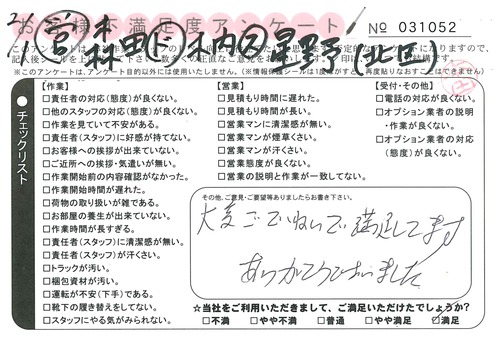 お客様不満足度アンケート
№ 031052
※このアンケートは、アンケート目的以外には使用いたしません。
チェックリスト
【作業】
□責任者の対応(態度)が良くない。
□他のスタッフの対応(態度)が良くない。
□作業を見ていて不安がある。
□責任者(スタッフ)に好感が持てない。
□お客様への挨拶が出来ていない。
□ご近所への挨拶・気遣いが無い。
□作業開始前の内容確認がなかった。
□作業開始時間が遅れた。
□荷物の取り扱いが雑である。
□お部屋の養生が出来ていない。
□作業時間が長すぎる。
□責任者(スタッフ)に清潔感が無い。
□責任者(スタッフ)が汗くさい。
□トラックが汚い。
□梱包資材が汚い。
□運転が不安(下手)である。
□靴下の履き替えをしてない。
□スタッフにやる気がみられない。
【営業】
□見積もり時間に遅れた。
□見積もり時間が長い。
□営業マンに清潔感が無い。
□営業マンが煙草くさい。
□営業マンが汗くさい。
□営業態度が良くない。
□営業の説明と作業が一致してない。
【受付・その他】
□電話の対応が良くない。
□オプション業者の説明
・作業が良くない。
□オプション業者の対応
(態度)が良くない。
その他、ご意見・ご要望等ありましたらお書き下さい。
大変ごていねいで満足してます
ありがとうございました
☆当社をご利用いただきまして、ご満足いただけたでしょうか?
□不満 □やや不満 □普通 □やや満足 □満足